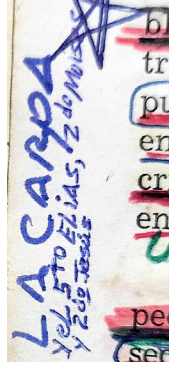 LA CARDA
y el 5to ELiAS, 2 de Moisés
y 2do Jesús
bl
tr
pu
en
cr
en
pe
sec